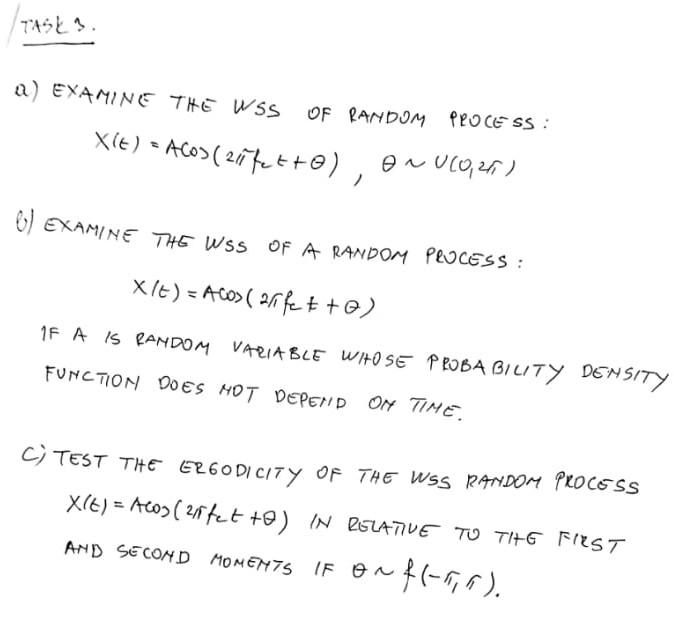 TASK 3.
a) EXAMINE THE WSS OF RANDOM PROCESS:
X(t) = Acos(2πfct+θ), θ ~ U(0,2π)
b) EXAMINE THE WSS OF A RANDOM PROCESS:
X(t) = Acos(2πfct+θ)
IF A IS RANDOM VARIABLE WHOSE PROBABILITY DENSITY
FUNCTION DOES NOT DEPEND ON TIME.
c) TEST THE ERGODICITY OF THE WSS RANDOM PROCESS
X(t) = Acos(2πfct+θ) IN RELATIVE TO THE FIRST
AND SECOND MOMENTS IF θ ~ f(-π,π).